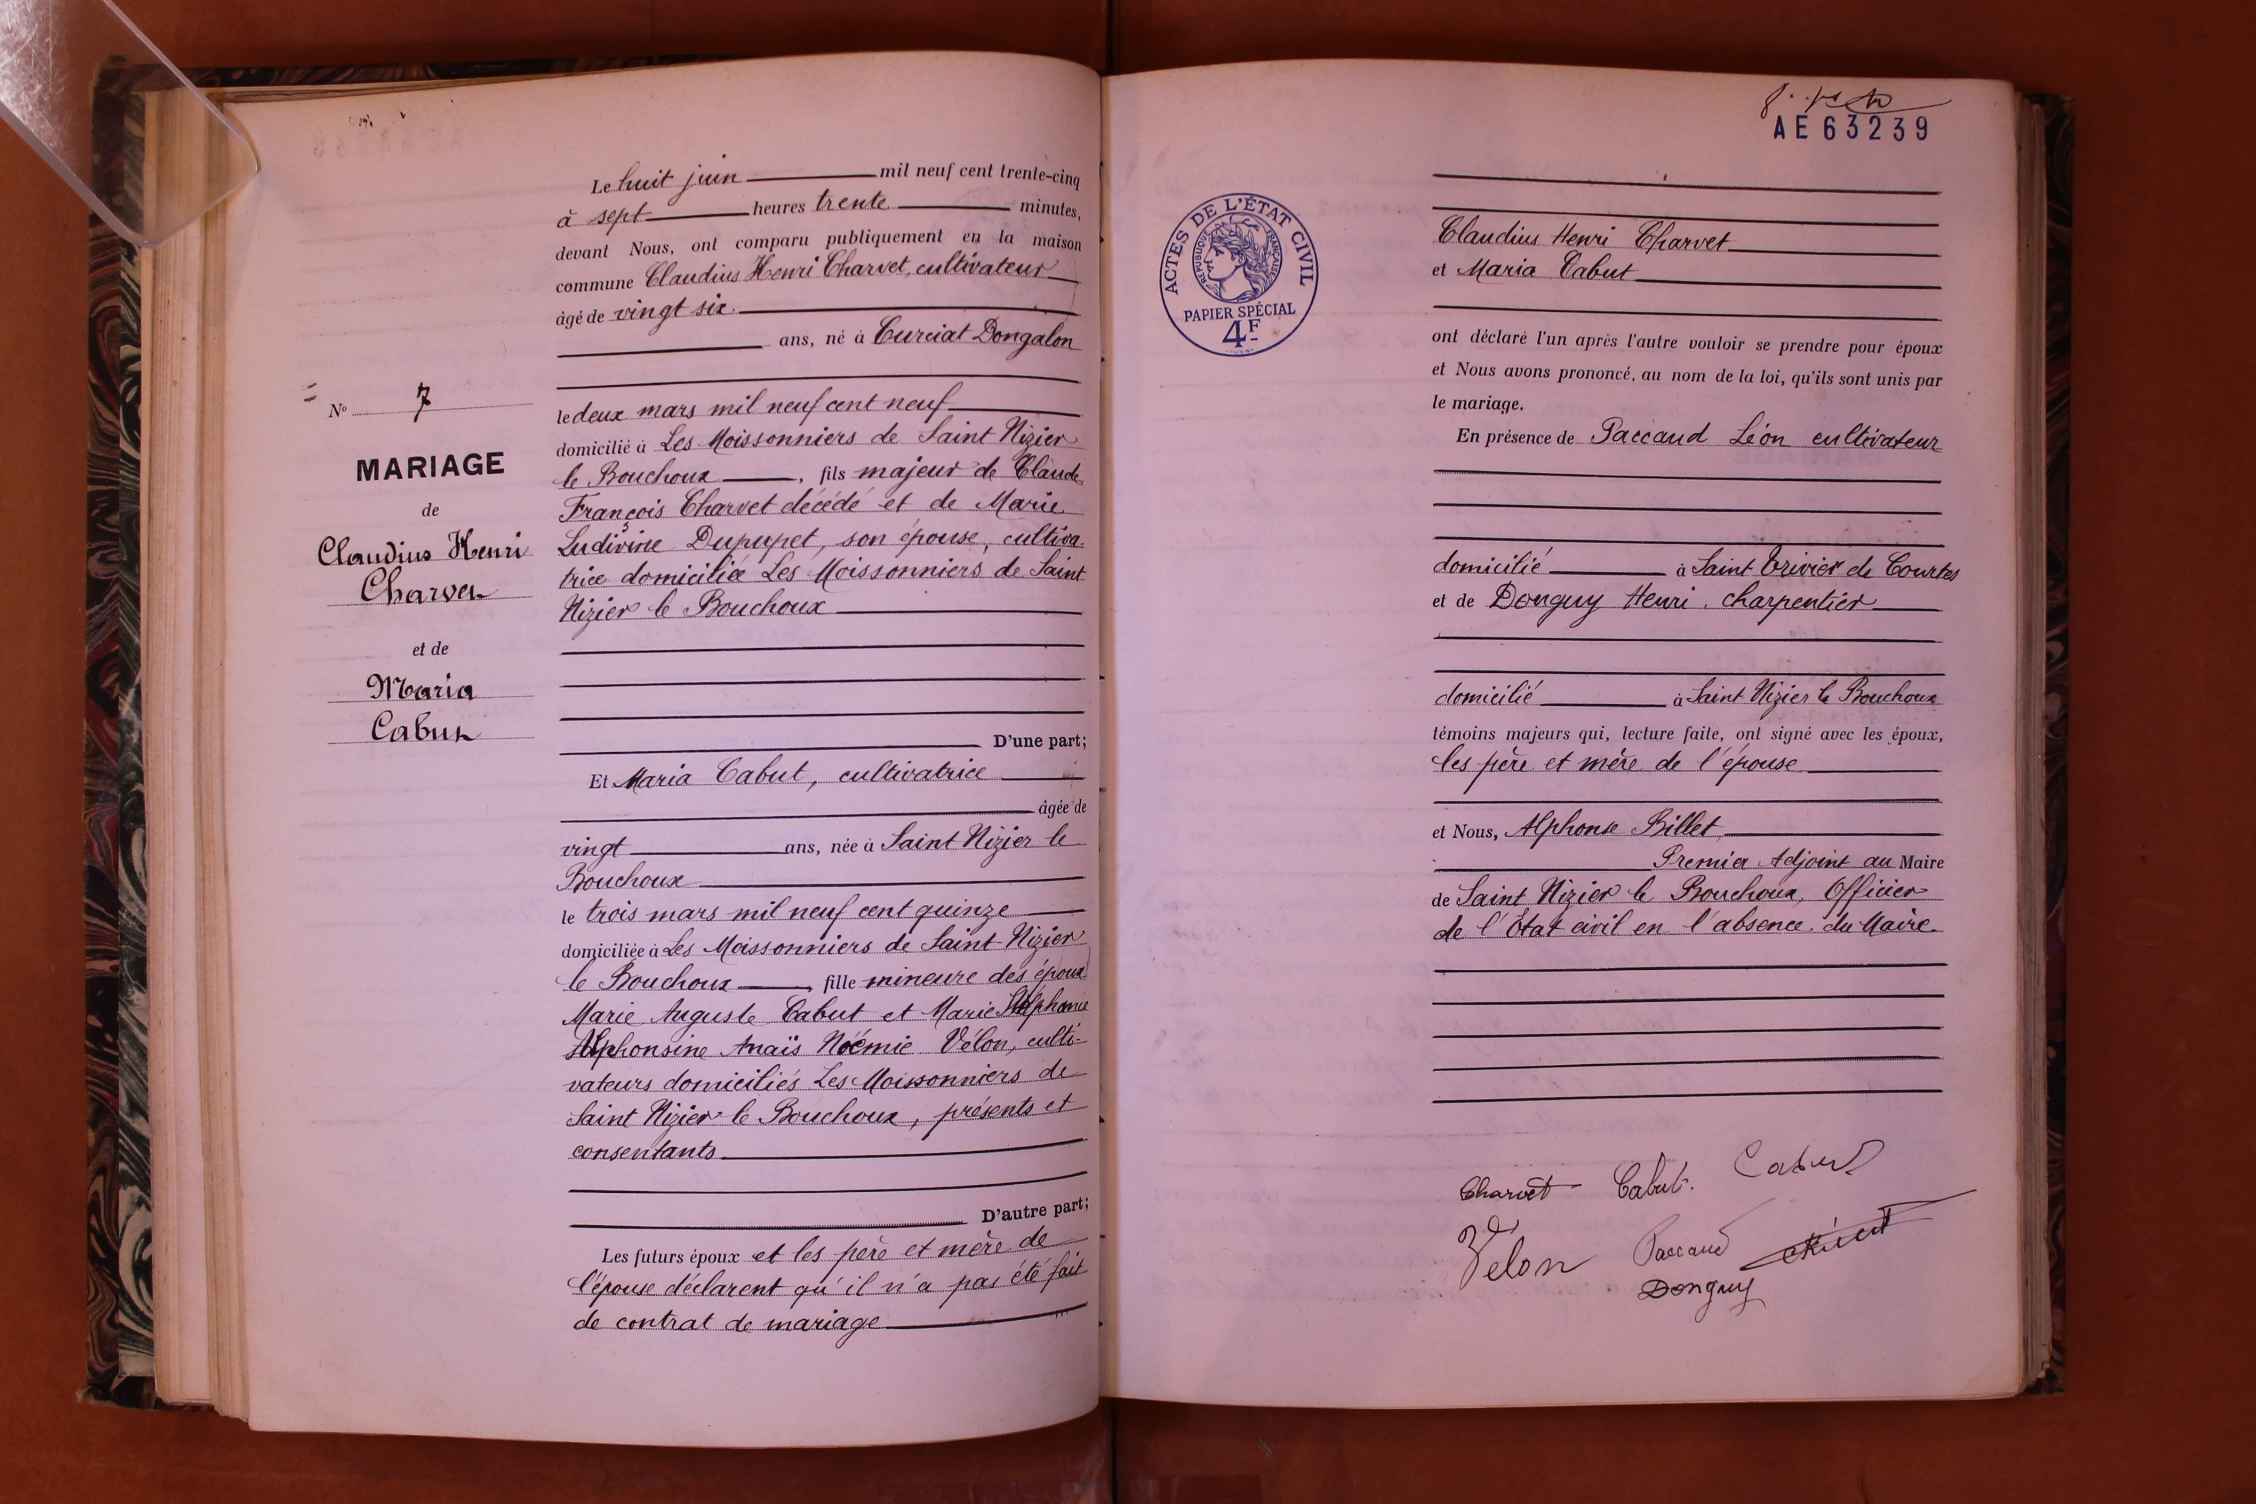 Le huit juin mil neuf cent trente-cinq
à sept heures trente minutes,
devant Nous, ont comparu publiquement en la maison
commune Claudius Henri Charvet, cultivateur
âgé de vingt six
ans, né à Curciat Dongalon
le deux mars mil neuf cent neuf
domicilié à Les Moissonniers de Saint Nizier
le Bouchoux, fils majeur de Claude
François Charvet décédé et de Marie
Ludivine Dupupet, son épouse, cultiva-
trice domiciliée Les Moissonniers de Saint
Nizier le Bouchoux
D'une part;
Et Maria Cabut, cultivatrice
âgée de
vingt ans, née à Saint Nizier le
Bouchoux
le trois mars mil neuf cent quinze
domiciliée à Les Moissonniers de Saint-Nizier
le Bouchoux, fille mineure des époux
Marie Auguste Cabut et Marie
Alphonsine Anaïs Noémie Vélon, culti-
vateurs domiciliés Les Moissonniers de
Saint Nizier le Bouchoux, présents et
consentants
D'autre part;
Les futurs époux et les père et mère de
l'épouse déclarent qu'il n'a pas été fait
de contrat de mariage
N° 7
MARIAGE
de
Claudius Henri
Charvet
et de
Maria
Cabut
AE 63239
ACTES DE L'ÉTAT CIVIL
RÉPUBLIQUE FRANÇAISE
PAPIER SPÉCIAL
4F
Claudius Henri Charvet
et Maria Cabut
ont déclaré l'un après l'autre vouloir se prendre pour époux
et Nous avons prononcé, au nom de la loi, qu'ils sont unis par
le mariage.
En présence de Paccaud Léon cultivateur
domicilié à Saint Trivier de Courtes
et de Donguy Henri, charpentier
domicilié à Saint Nizier le Bouchoux
témoins majeurs qui, lecture faite, ont signé avec les époux,
les père et mère de l'épouse
et Nous, Alphonse Billet
Premier Adjoint au Maire
de Saint Nizier le Bouchoux, Officier
de l'État civil en l'absence du Maire.
Charvet Cabut. Cabut
Velon Paccaud
Donguy